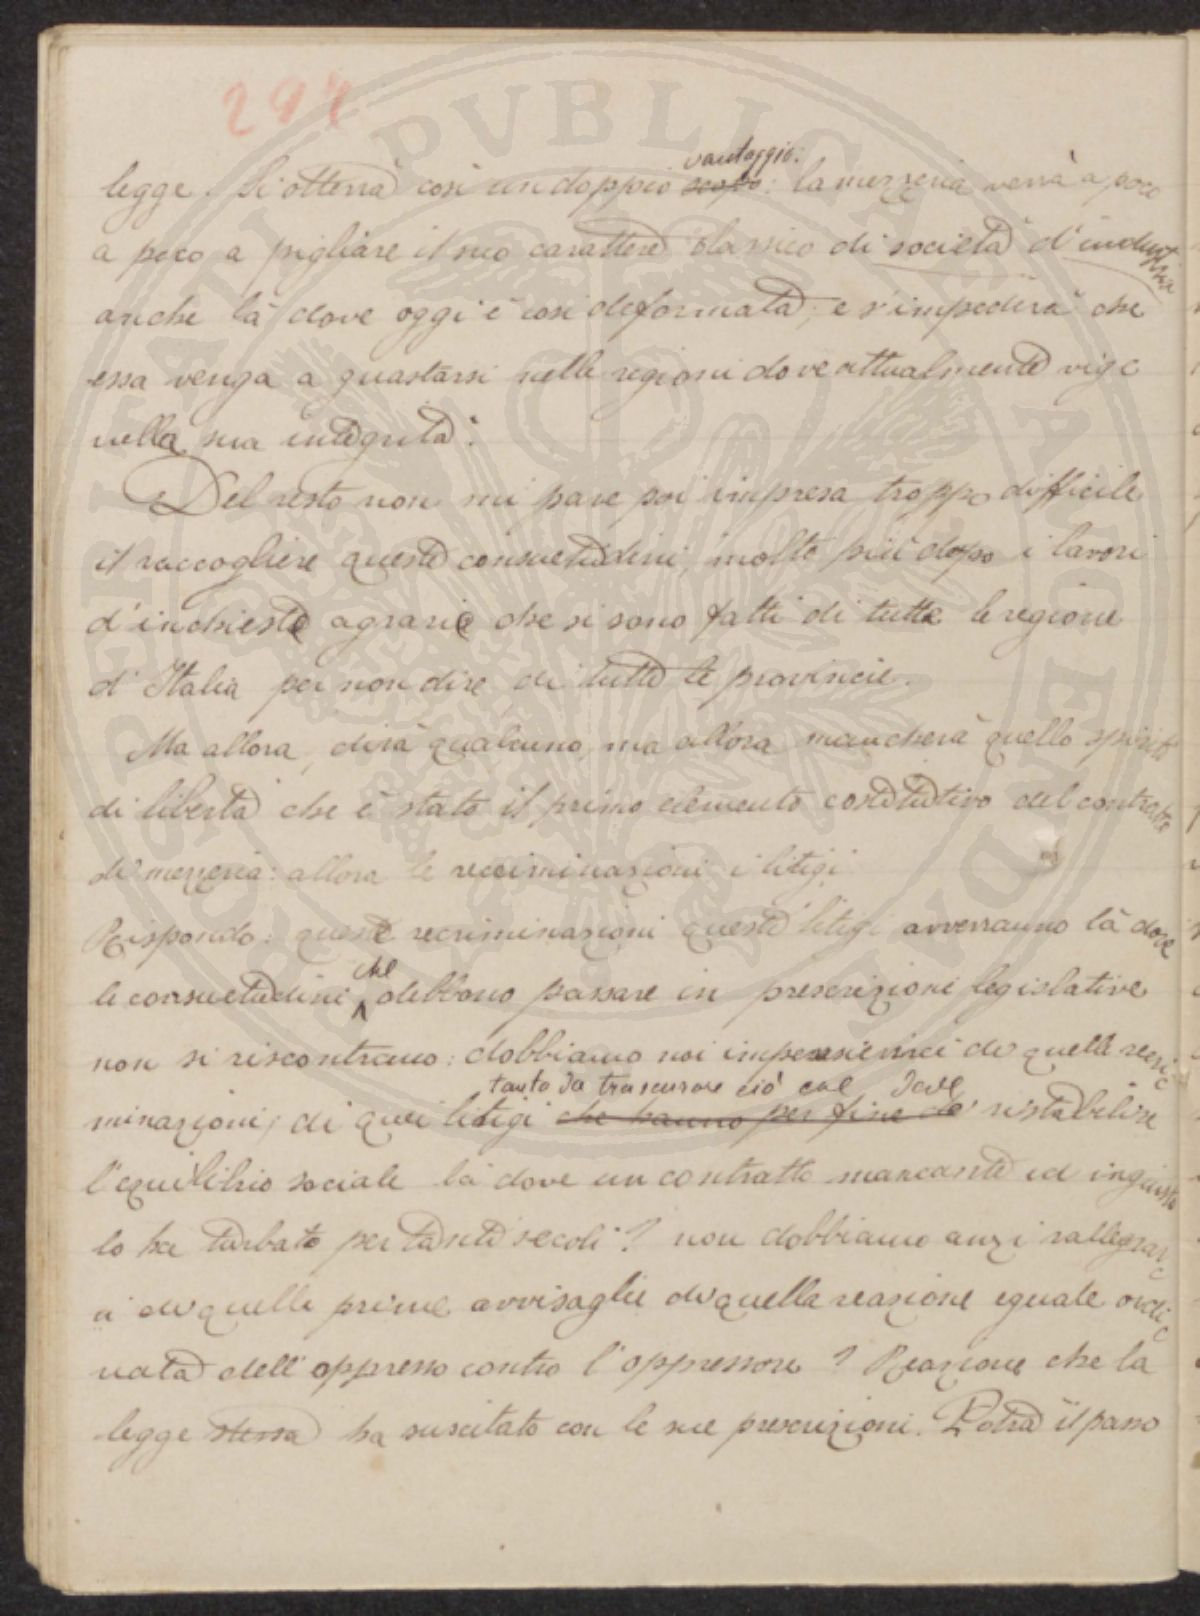 294
legge. Si otterrà così un doppio ~~scopo~~ vantaggio: la mezzeria verrà a poco
a poco a pigliare il suo carattere classico di società d'industria
anche là dove oggi è così deformata, e s'impedirà che
essa venga a guastarsi nelle regioni dove attualmente vige
nella sua integrità.
Del resto non mi pare poi impresa troppo difficile
il raccogliere queste consuetudini, molto più dopo i lavori
d'inchieste agrarie che si sono fatti di tutte le regione
d'Italia per non dire di tutte le provincie.
Ma allora, dirà qualcuno, ma allora mancherà quello spirito
di libertà che è stato il primo elemento costitutivo del contratto
di mezzeria: allora le recriminazioni i litigi
Rispondo: queste recriminazioni questi litigi avverranno là dove
le consuetudini che debbono passare in prescrizioni legislative
non si riscontrano: dobbiamo noi impensierirci di quelle recri
minazioni, di quei litigi ~~che hanno per fine di~~ tanto da trascurare ciò che deve ristabilire
l'equilibrio sociale là dove un contratto mancante ed ingiusto
lo ha turbato per tanti secoli? non dobbiamo anzi rallegrar
ci di quelle prime avvisaglie di quella reazione eguale ordi
nata dell'oppresso contro l'oppressore? Reazione che la
legge ~~stessa~~ ha suscitato con le sue prescrizioni. Potrà il passo